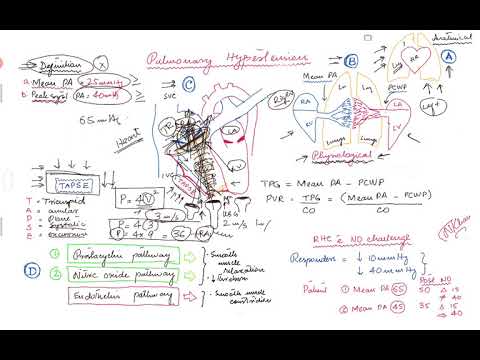 Pulmonary Hypertension
Definition
a. Mean PA = 25mmHg ≥
b. Peak syst PA: 40mmHg ≥
65 mmHg
Heart
X
C
SVC
TR
RA
LA
LV
IVC
TAPSE
T = Tricuspid
A = annular
P = Plane
S = systolic
E = excursion
P = 4V²
P = 4(3)²
P = 4x9 = 36 + (RA)
3 m/s
2 m/s
D
1 Prostacyclin pathway
2 Nitric oxide pathway
Endothelin pathway
- Smooth muscle relaxation
- Smooth muscle constriction
B
Mean PA
Ln
Ln
PCWP
Right
RA
RV
LA
LV
Left
Lungs
Lungs
Physiological
Anatomical
A
TPG = Mean PA - PCWP
PVR = TPG / CO = (Mean PA - PCWP) / CO
RHC c NO challenge
Responders = ↓ 10 mmHg
↓ 40 mmHg
Post NO
Patient 1 Mean PA 65 50 Δ 15
≠ 40
2 Mean PA 45 35 Δ 15
⇒ 40